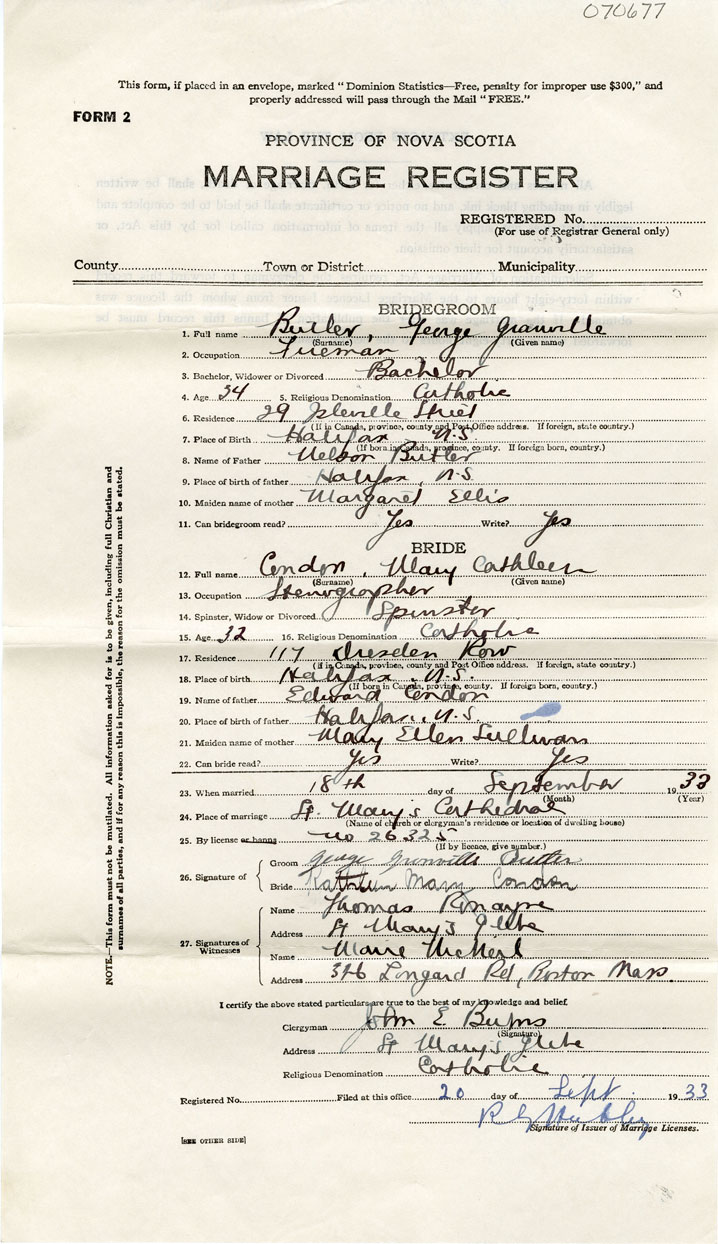 070677
This form, if placed in an envelope, marked "Dominion Statistics—Free, penalty for improper use $300," and
properly addressed will pass through the Mail "FREE."
FORM 2
PROVINCE OF NOVA SCOTIA
MARRIAGE REGISTER
REGISTERED No.
(For use of Registrar General only)
County Town or District Municipality
BRIDEGROOM
1. Full name Butler, George Granville
(Surname) (Given name)
2. Occupation Fireman
3. Bachelor, Widower or Divorced Bachelor
4. Age 34 5. Religious Denomination Catholic
6. Residence 29 Isleville Street
(If in Canada, province, county and Post Office address. If foreign, state country.)
7. Place of Birth Halifax N.S.
(If born in Canada, province, county. If foreign born, country.)
8. Name of Father Nelson Butler
9. Place of birth of father Halifax, N.S.
10. Maiden name of mother Margaret Ellis
11. Can bridegroom read? Yes Write? Yes
BRIDE
12. Full name Condon, Mary Cathleen
(Surname) (Given name)
13. Occupation Stenographer
14. Spinster, Widow or Divorced Spinster
15. Age 32 16. Religious Denomination Catholic
17. Residence 117 Dresden Row
(If in Canada, province, county and Post Office address. If foreign, state country.)
18. Place of birth Halifax, N.S.
(If born in Canada, province, county. If foreign born, country.)
19. Name of father Edward Condon
20. Place of birth of father Halifax, N.S.
21. Maiden name of mother Mary Ellen Sullivan
22. Can bride read? Yes Write? Yes
23. When married 18th day of September 1933
(Month) (Year)
24. Place of marriage St. Mary's Cathedral
(Name of church or clergyman's residence or location of dwelling house)
25. By license or banns no 26325
(If by licence, give number.)
26. Signature of
Groom George Granville Butler
Bride Kathleen Mary Condon
27. Signatures of Witnesses
Name Thomas Ronayne
Address St Mary's Glebe
Name Marie
Address 376 Longard Rd, Boston Mass.
I certify the above stated particulars are true to the best of my knowledge and belief.
Clergyman John E Burns
(Signature)
Address St Mary's Glebe
Religious Denomination Catholic
Registered No. Filed at this office 20 day of Sept. 1933
Signature of Issuer of Marriage Licenses.
[SEE OTHER SIDE]
NOTE.—This form must not be mutilated. All information asked for is to be given, including full Christian and
surnames of all parties, and if for any reason this is impossible, the reason for the omission must be stated.